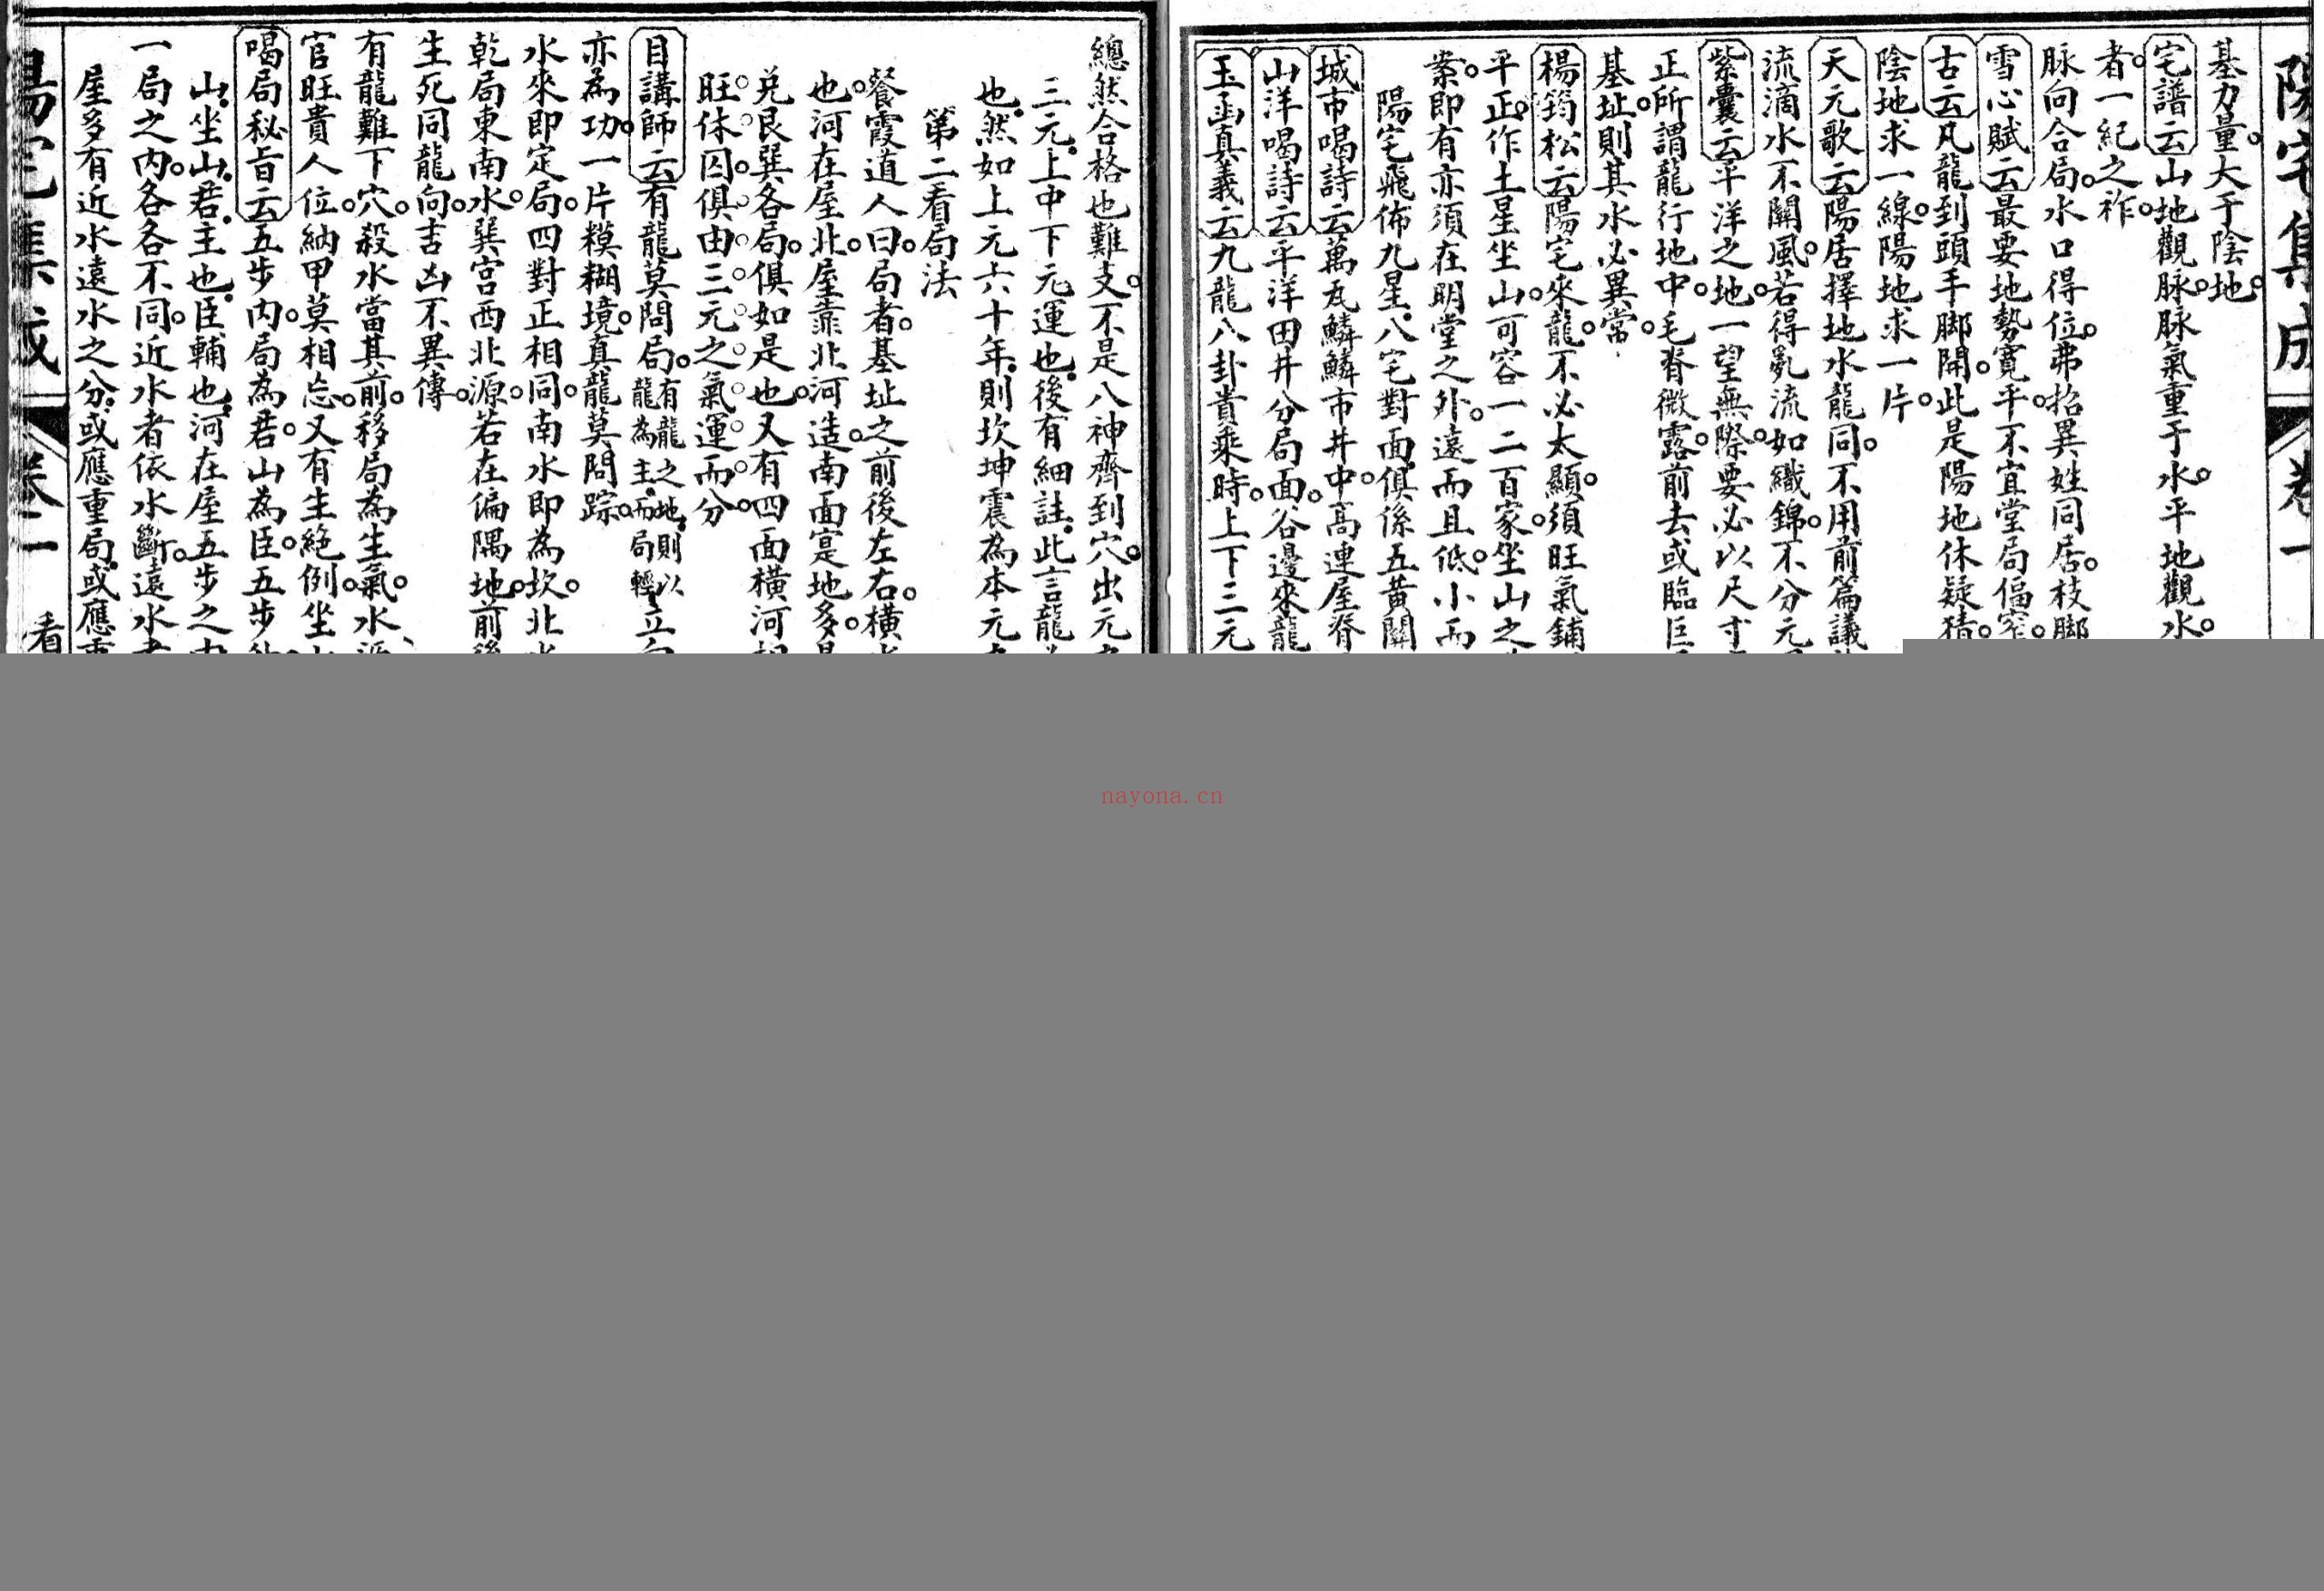 陽宅集成 卷一
基力量。大于陰地。
宅譜云山地觀脉。脉氣重于水。平地觀水。
者。一紀之祚。
脉向合局。水口得位。弗招異姓同居。枝脚
雪心賦云最要地勢寬平。不宜堂局偪窄。
古云凡龍到頭手脚開。此是陽地休疑猜。
陰地求一線。陽地求一片。
天元歌云陽居擇地水龍同。不用前篇議
流滴水不關風。若得亂流如織錦。不分元
紫囊云平洋之地。一望無際。要必以尺寸
正所謂龍行地中。毛脊微露。前去或臨巨
基址。則其水必異常。
楊筠松云陽宅來龍。不必太顯。須旺氣鋪
平正。作土星坐山。可容一二百家。坐山之
案。即有亦須在明堂之外。遠而且低。小而
陽宅飛佈九星。八宅對面。俱係五黃關
城市喝詩云萬瓦鱗鱗市井中。高連屋脊
山洋喝詩云平洋田井分局面。谷邊來龍
玉函真義云九龍八卦貴乘時。上下三元
總然合格也難支。不是八神齊到穴。出元
三元。上中下元運也。後有細註。此言龍
也。然如上元六十年。則坎坤震為本元
第二看局法
餐霞道人曰。局者。基址之前後左右。橫
也。河在屋北。屋靠北河。造南面寔地多。
兌艮巽各局。俱如是也。又有四面橫河
旺休囚。俱由三元之氣運而分。
目講師云有龍莫問局。有龍之地。則以龍為主。而局輕。立
亦為功。一片糢糊境。真龍莫問踪。
水來即定局。四對正相同。南水即為坎。北
乾局東南水。巽宮西北源。若在偏隅地。前後
生死同龍向。吉凶不異傳。
有龍難下穴。殺水當其前。移局為生氣。水
官旺貴人位。納甲莫相忘。又有生絕例。坐
喝局秘旨云五步內。局為君。山為臣。五步
山。坐山。君。主也。臣。輔也。河在屋五步之
一局之內。各各不同。近水者依水斷。遠水
屋多有近水遠水之分。或應重局。或應
陽宅集成 卷一 看
nayona.cn